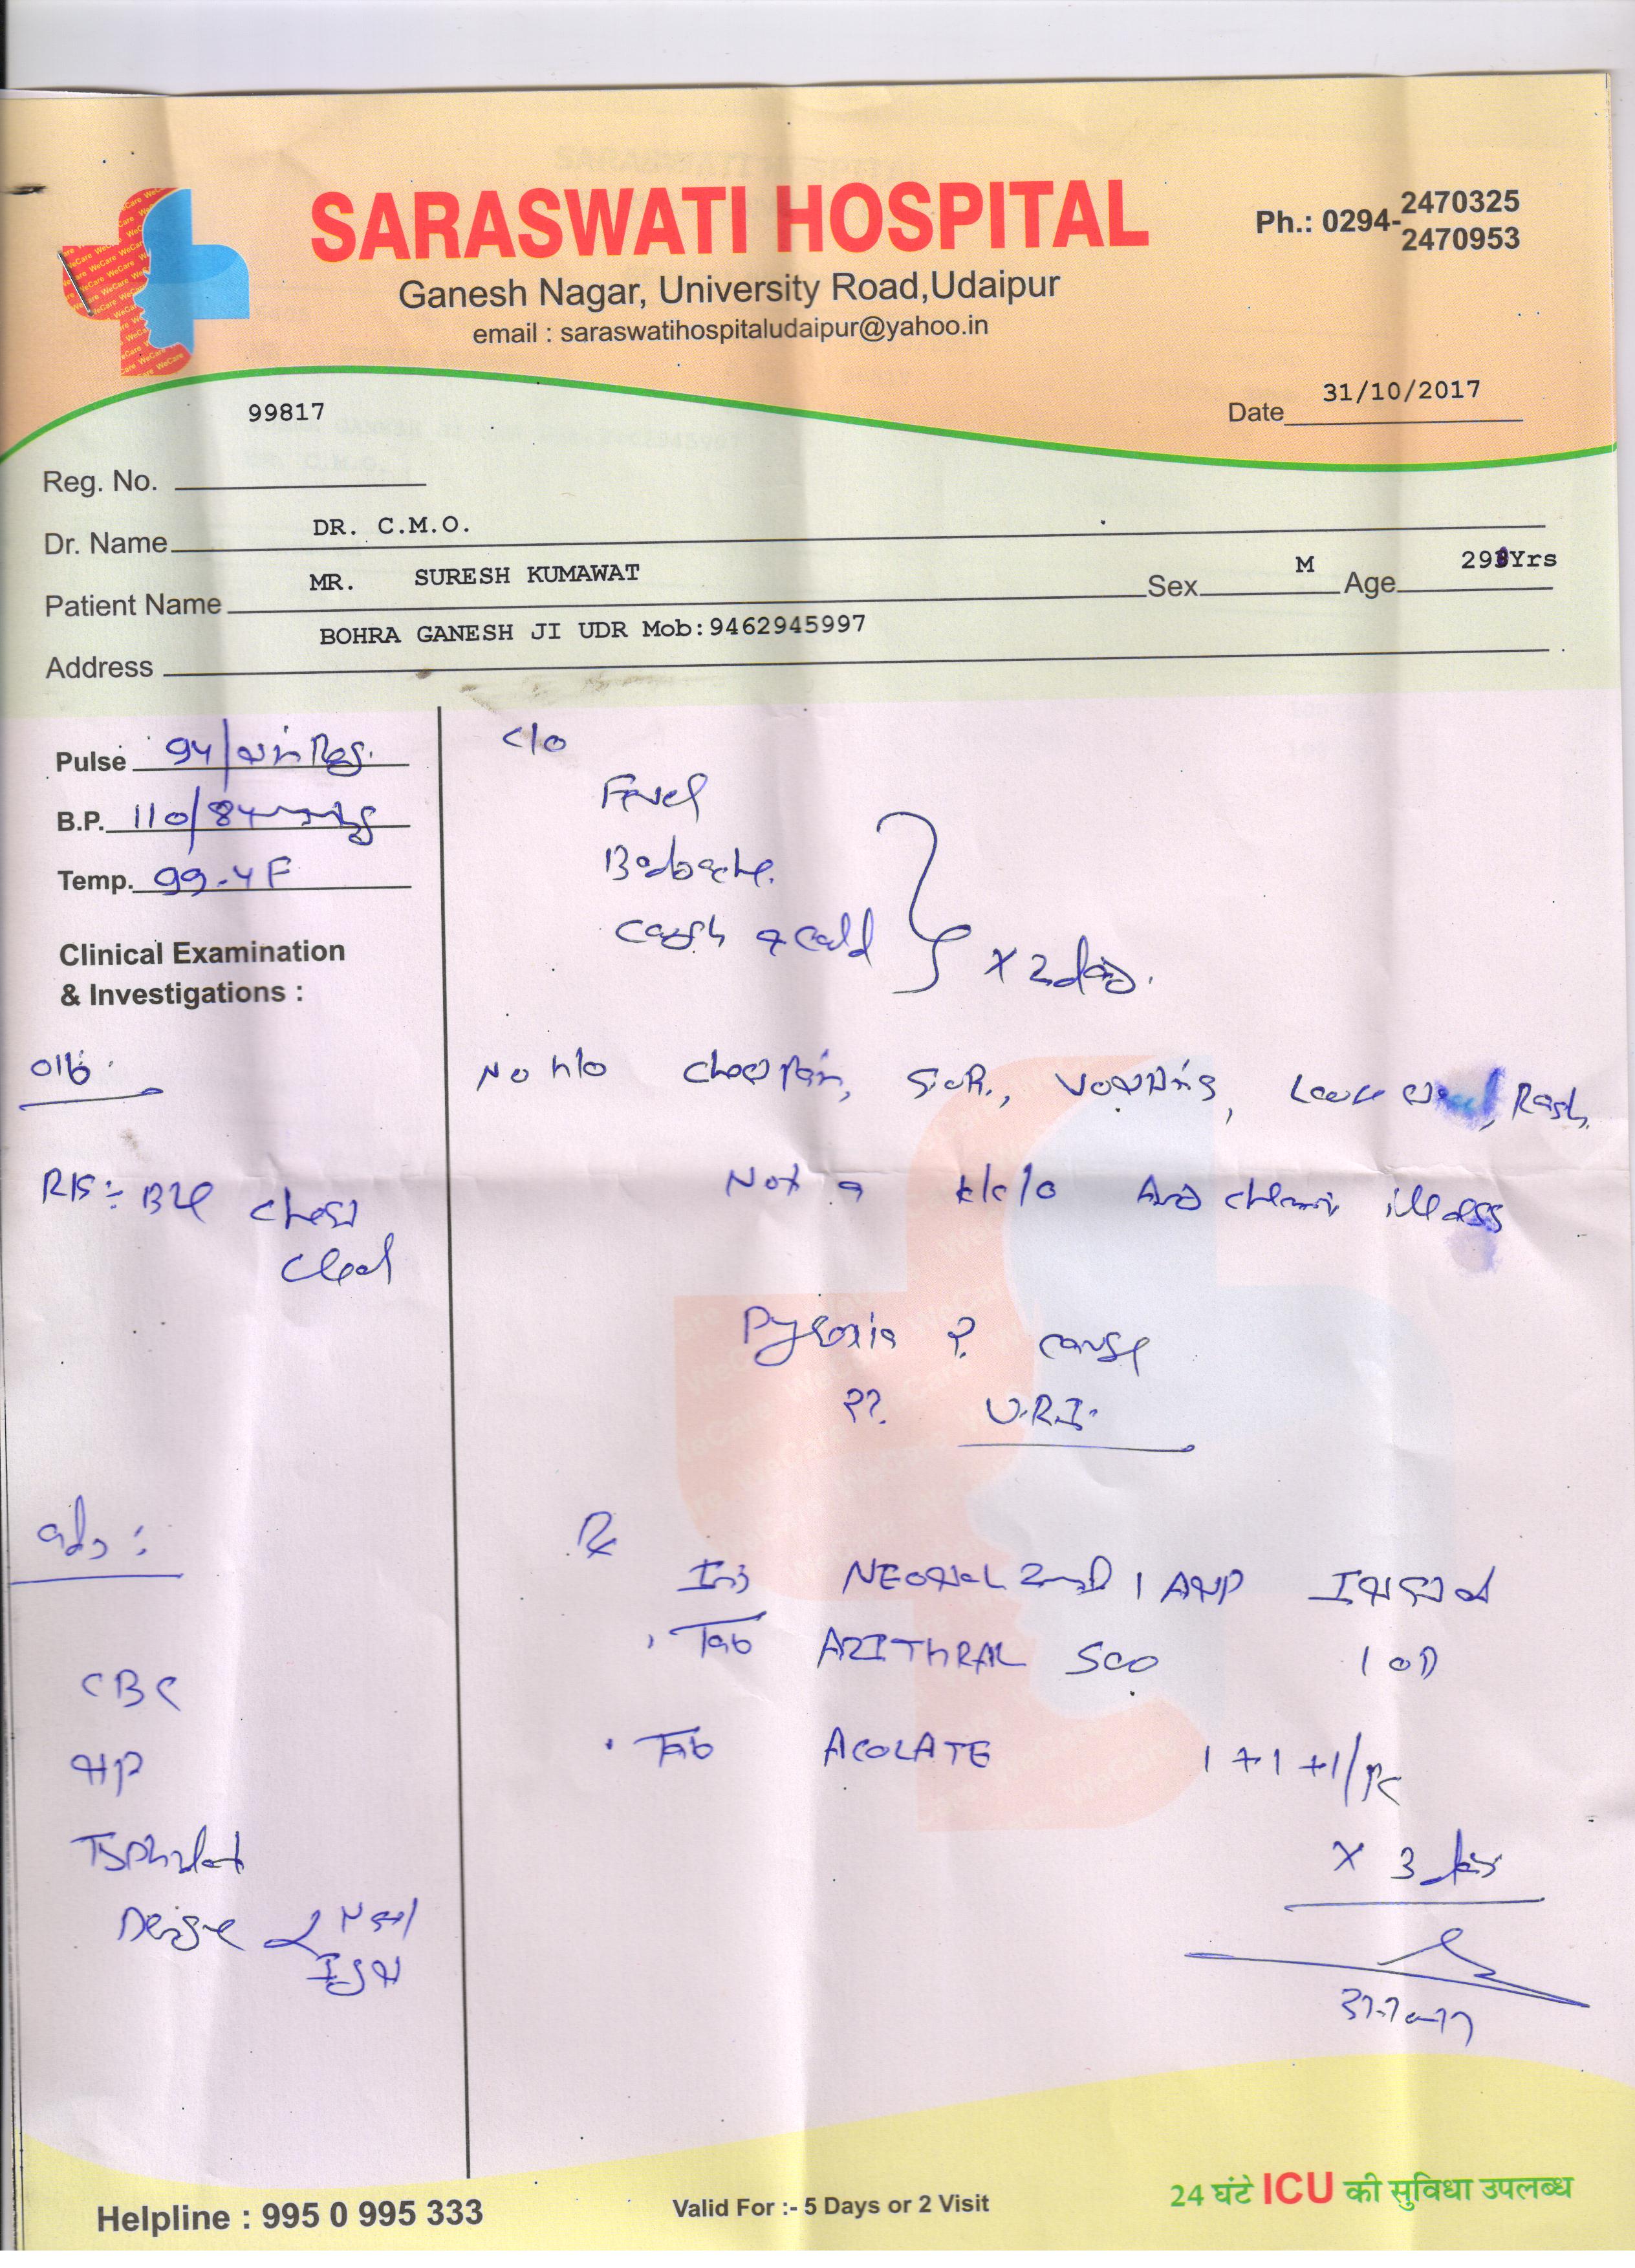 SARASWATI HOSPITAL
Ganesh Nagar, University Road,Udaipur
email : saraswatihospitaludaipur@yahoo.in
Ph.: 0294-2470325
2470953
99817
Date 31/10/2017
Reg. No.
Dr. Name DR. C.M.O.
Patient Name MR. SURESH KUMAWAT Sex M Age 29 Yrs
Address BOHRA GANESH JI UDR Mob:9462945997
Pulse 94/min Reg.
B.P. 110/84mmhg
Temp. 99.4F
Clinical Examination
& Investigations :
O/E
R/S:- B/L Chest
Clear
adv :
CBC
MP
Typhidot
Dengue NS1
IgM
C/o
Fever
Bodyache
Cough & Cold x 2 days.
No h/o Chest pain, S.O.B., Vomiting, Loose, Rash
Not a k/c/o Any chronic illness
Pyrexia ? cause
?? U.R.I.
Rx
Inj NEOMOL 2ml 1 AMP IM stat
Tab AZITHRAL 500 1 OD
Tab ACOLATE 1+1+1/pc
x 3 days
31-10-17
Helpline : 995 0 995 333
Valid For :- 5 Days or 2 Visit
24 घंटे ICU की सुविधा उपलब्ध